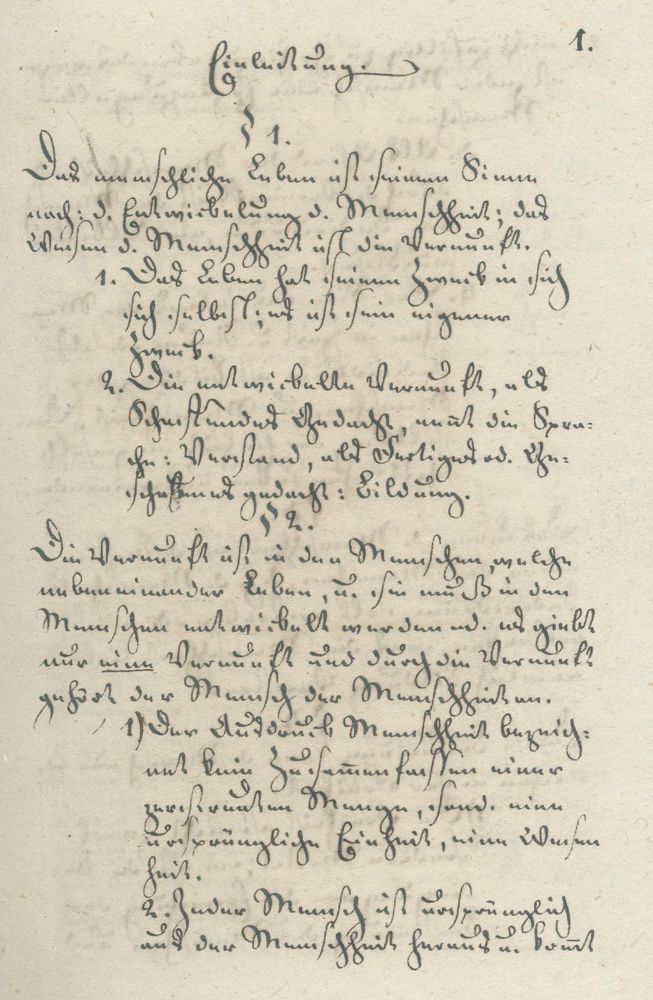 1.
Einleitung.
§ 1.
Das menschliche Leben ist seinem Sinne
nach: d. Entwickelung d. Menschheit; das
Wesen d. Menschheit ist die Vernunft.
1. Das Leben hat seinen Zweck in sich
sich selbst; es ist sein eigener
Zweck.
2. Die entwickelte Vernunft, als
Schaffendes Gedacht, nennt die Spra-
che: Verstand, als Fertiges od. Ge-
schaffenes gedacht: Bildung.
§ 2.
Die Vernunft ist in den Menschen, welche
nebeneinander Leben, u. sie muß in den
Menschen entwickelt werden od. es giebt
nur eine Vernunft und durch die Vernunft
gehört der Mensch der Menschheit an.
1) Der Ausdruck Menschheit bezeich-
net kein Zusammenfassen einer
zerstreuten Menge, sond. eine
ursprüngliche Einheit, eine Wesen
heit.
2. Jeder Mensch ist ursprünglich
aus der Menschheit heraus u. kommt